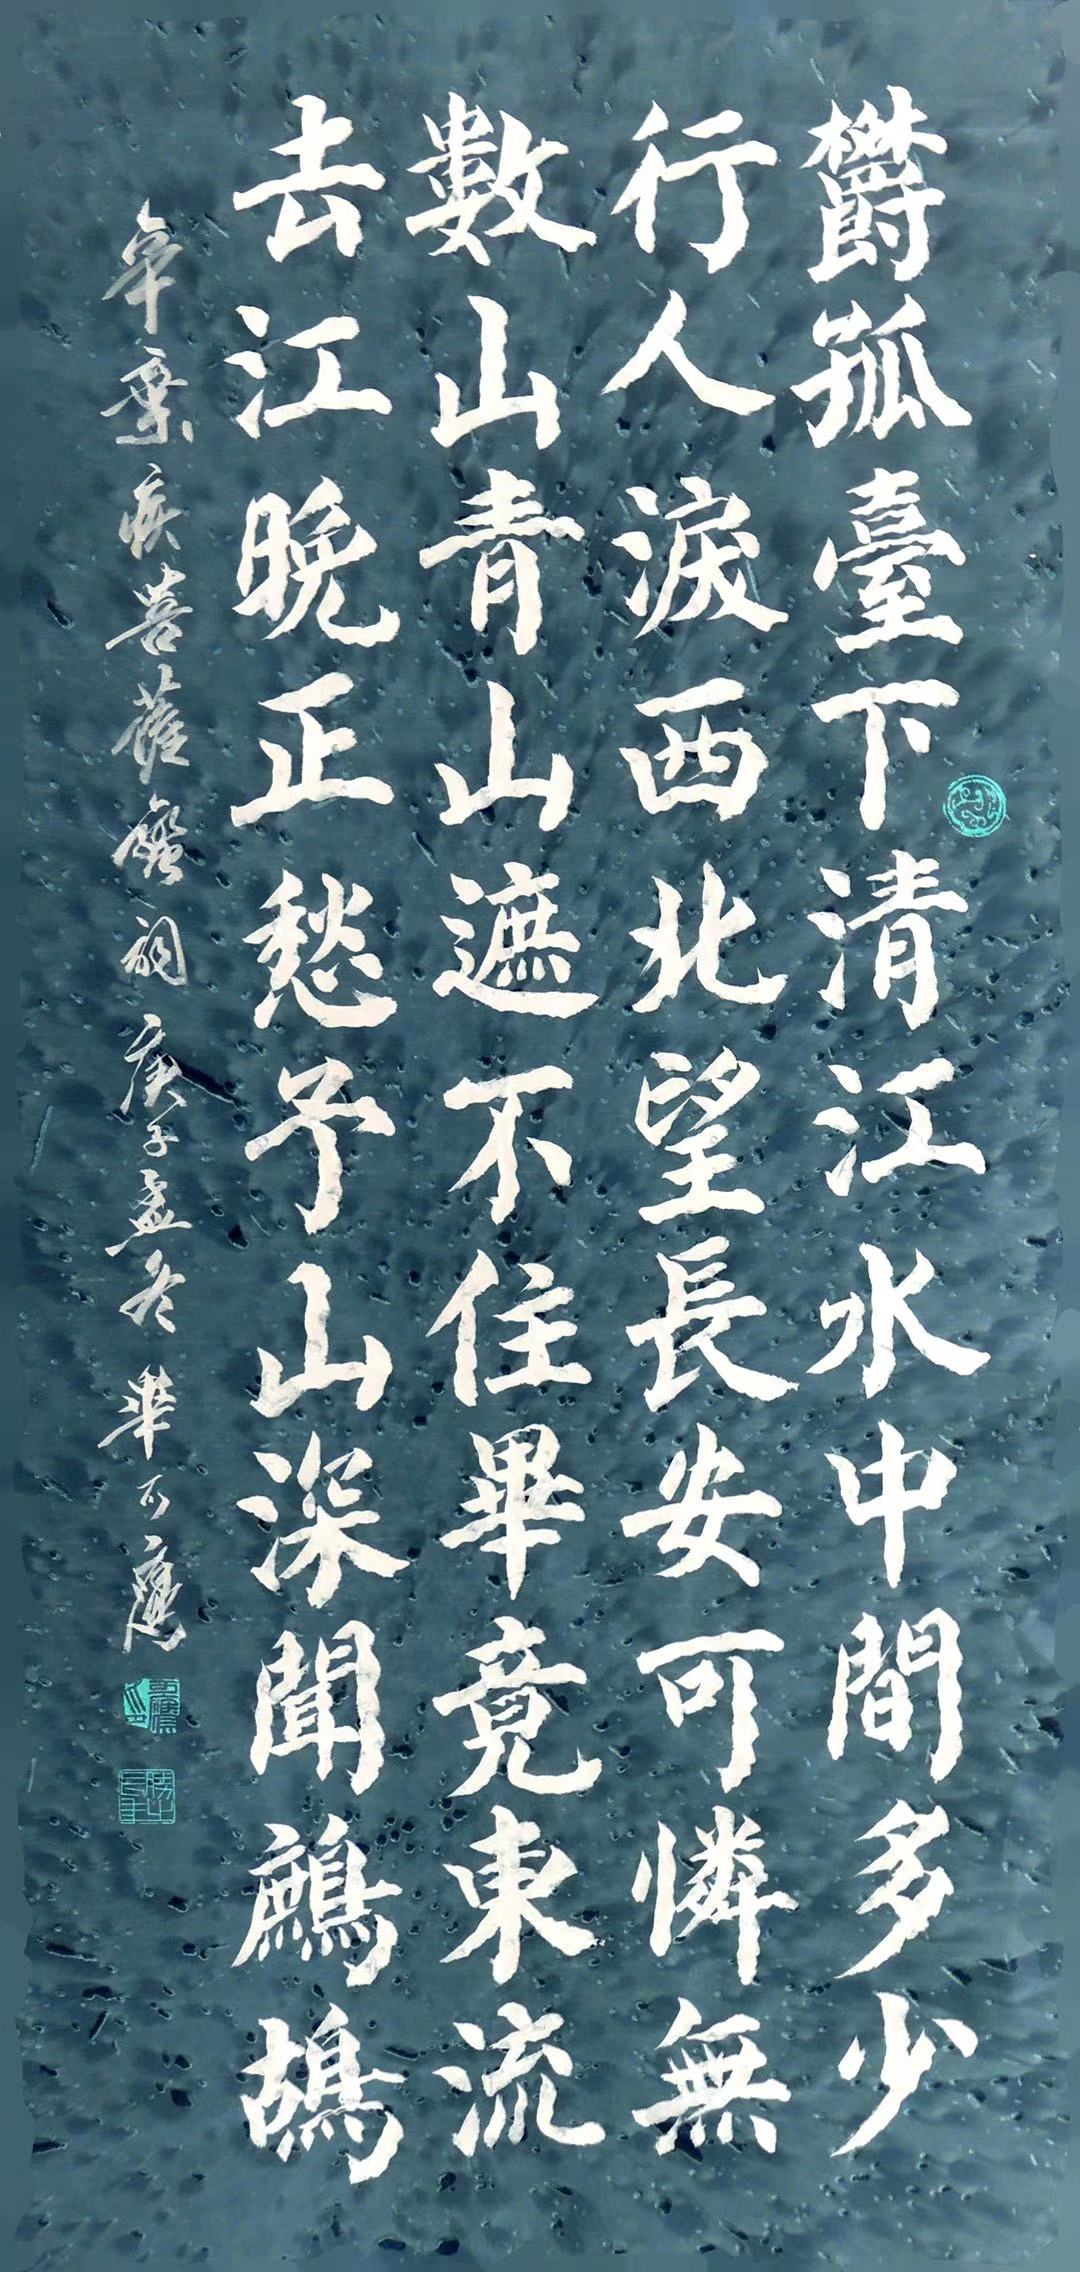 欝孤臺下清江水中間多少
行人淚西北望長安可憐無
數山青山遮不住畢竟東流
去江晚正愁予山深聞鷓鴣
辛棄疾菩薩蠻詞庚子孟冬華可